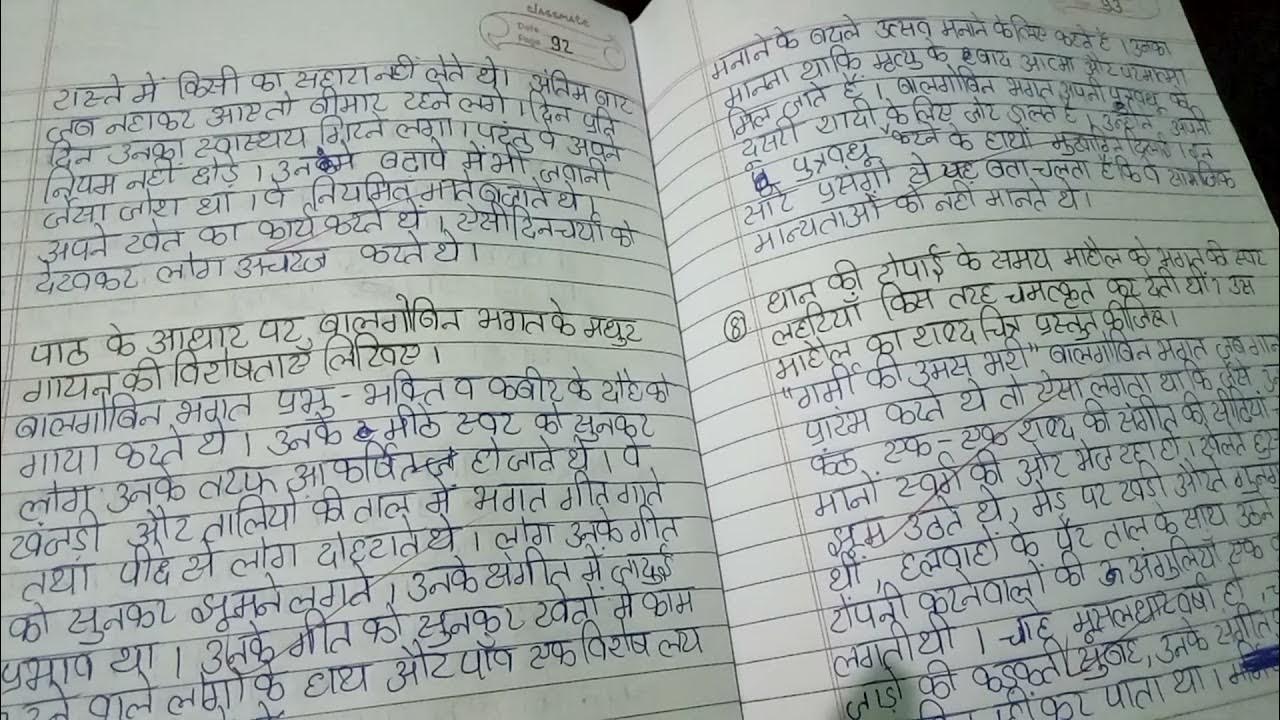 classmate
Date
Page 92
रास्ते में किसी का सहारा नहीं लेते थे। अंतिम बार
जब नहाकर आए तो बीमार रहने लगे। दिन प्रति
दिन उनका स्वास्थय गिरने लगा। परंतु वे अपने
नियम नहीं छोड़े। उनमे बढापे में भी जवानी
जैसा जोश था। वे नियमित गीत गाते थे।
अपने खेत का कार्य करते थे। ऐसी दिनचर्या को
देखकर लोग अचरज करते थे।
पाठ के आधार पर बालगोबिन भगत के मधुर
गायन की विशेषताएँ लिखिए।
बालगोबिन भगत प्रभु - भक्ति व कबीर के दोहे को
गाया करते थे। उनके मीठे स्वर को सुनकर
लोग उनके तरफ आकर्षित हो जाते थे। वे
खंजड़ी और तालियों की ताल में भगत गीत गाते
तथा पीछे से लोग दोहराते थे। लोग उनके गीत
को सुनकर झूमने लगते। उनके संगीत में जादुई
प्रभाव था। उनके गीत को सुनकर खेतों में काम
वाले लोगों के हाथ और पाँव एक विशेष लय
93
मनाने के बदले उत्सव मनाने के लिए कहते हैं। उनका
मानना था कि मृत्यु के बाद आत्मा और परमात्मा
मिल जाते हैं। बालगोबिन भगत अपनी पुत्रवधू को
दूसरी शादी के लिए जोर डालते हैं। उन्होंने अपनी
पुत्रवधू के हाथों मुखाग्नि दिलाई। इन
सारे प्रसंगों से यह पता चलता है कि वे सामाजिक
मान्यताओं को नहीं मानते थे।
⑧ धान की रोपाई के समय माहौल के भगत की स्वर
लहरियाँ किस तरह चमत्कृत कर देती थीं। उस
माहौल का शब्द चित्र प्रस्तुत कीजिए।
"गर्मी की उमस भरी" बालगोबिन भगत जब गाना
प्रारंम करते थे तो ऐसा लगता था कि जैसे
कंठ एक - एक शब्द को संगीत की सीढ़ियाँ
मानों स्वर्ग की ओर भेज रहा हो। खेलते हुए
झूम उठते थे, मेंड़ पर खड़ी औरतें
थीं, हलवाहों के पैर ताल के साथ उठने
रोपनी करनेवालों की अंगुलियाँ एक
लगती थी। चाहे मूसलधार वर्षा हो,
जाड़ो की कड़कती सुबह, उनके संगीत
कर पाता था।